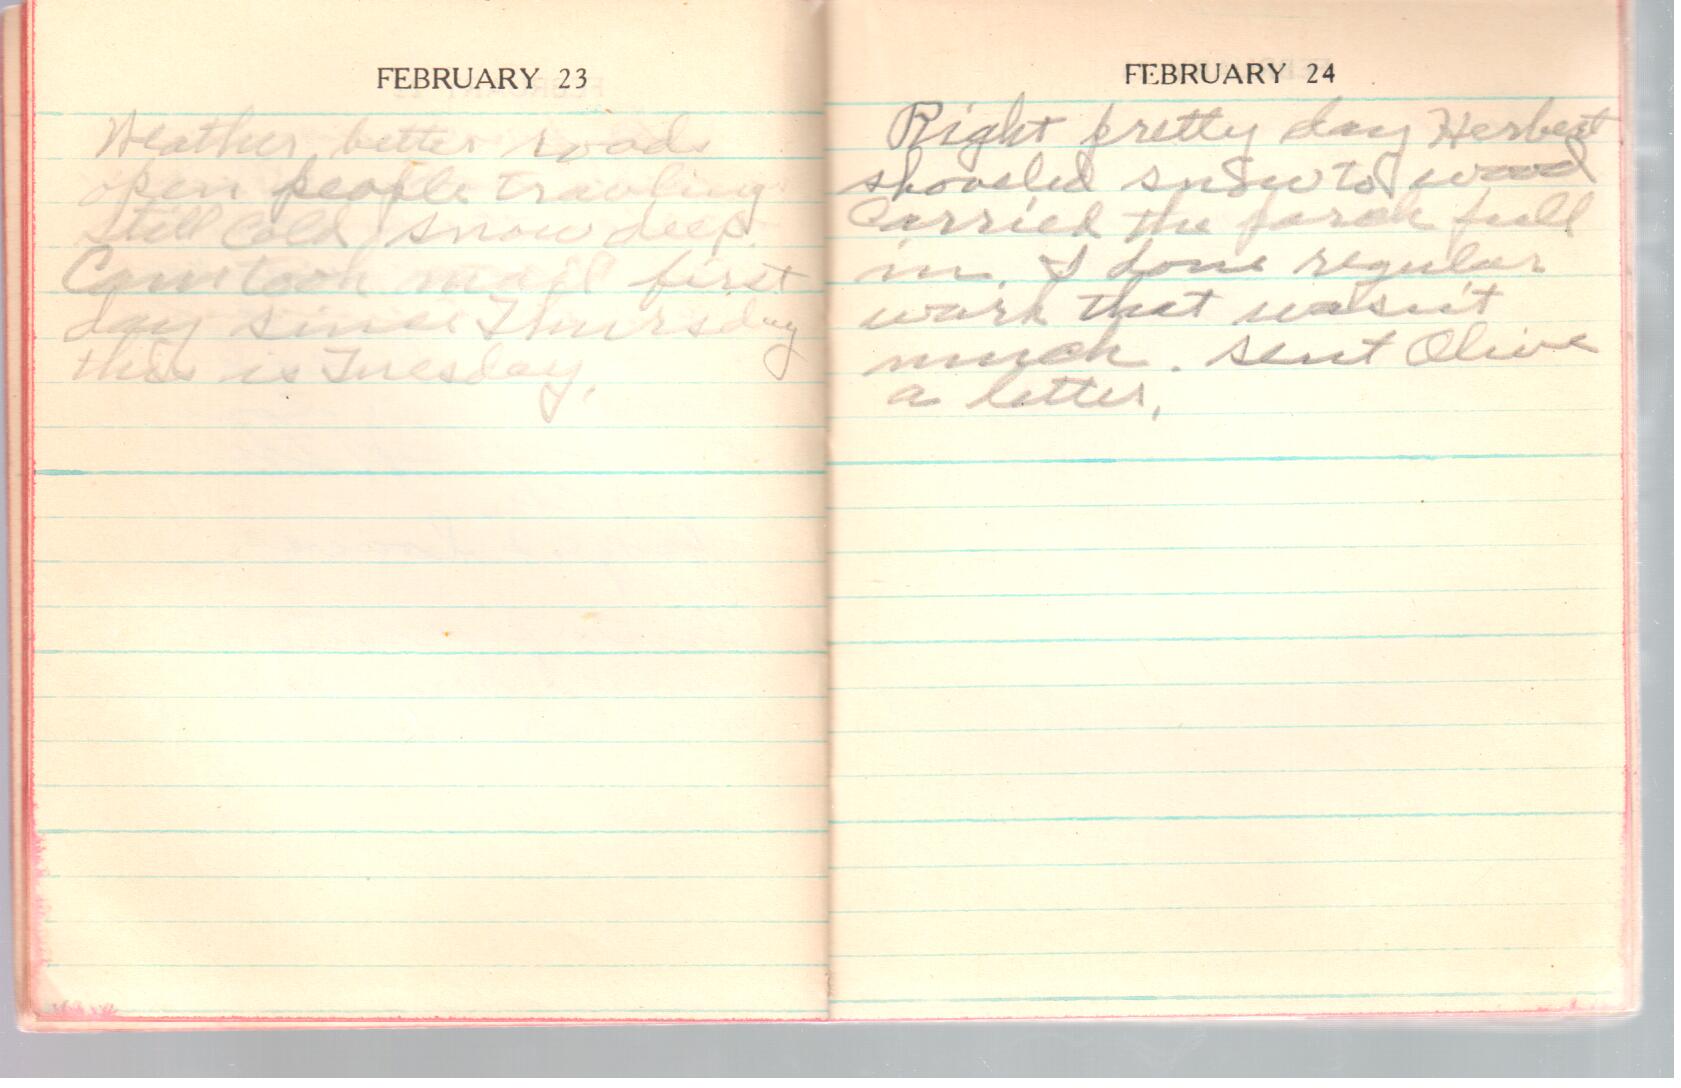 FEBRUARY 23
Weather better roads
open people travling
still cold, snow deep.
Cam took mail first
day since Thursday
this is Tuesday,
FEBRUARY 24
Right pretty day Herbert
shoveled snow to wood
Carried the porch full
in. I done regular
work that wasn't
much. sent Olive
a letter,